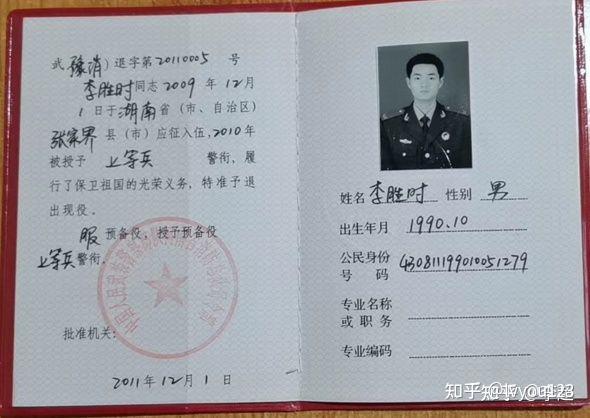 武(豫消)退字第20110005 号
李胜时同志2009 年 12 月
1 日于湖南省（市、自治区）
张家界县（市）应征入伍，2010年
被授予 上等兵 警衔，履
行了保卫祖国的光荣义务，特准予退
出现役。
服 预备役，授予预备役
上等兵警衔。
批准机关：
2011年 12 月 1 日
姓名 李胜时 性别 男
出生年月 1990.10
公民身份
号 码 430811199010051279
专业名称
或 职 务
专业编码